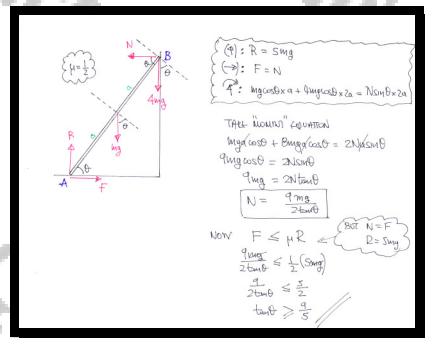 μ = 1/2
N
B
θ
θ
4mg
a
θ
mg
a
R
θ
A
F
(↑): R = 5mg
(→): F = N
A: mgcosθ×a + 4mgcosθ×2a = Nsinθ×2a
TAKE "MOMENT" EQUATION
mgacosθ + 8mgacosθ = 2Nasinθ
9mgcosθ = 2Nsinθ
9mg = 2Ntanθ
N = 9mg/2tanθ
NOW F ≤ μR
BUT N = F
R = 5mg
9mg/2tanθ ≤ 1/2(5mg)
9/2tanθ ≤ 5/2
tanθ ≥ 9/5